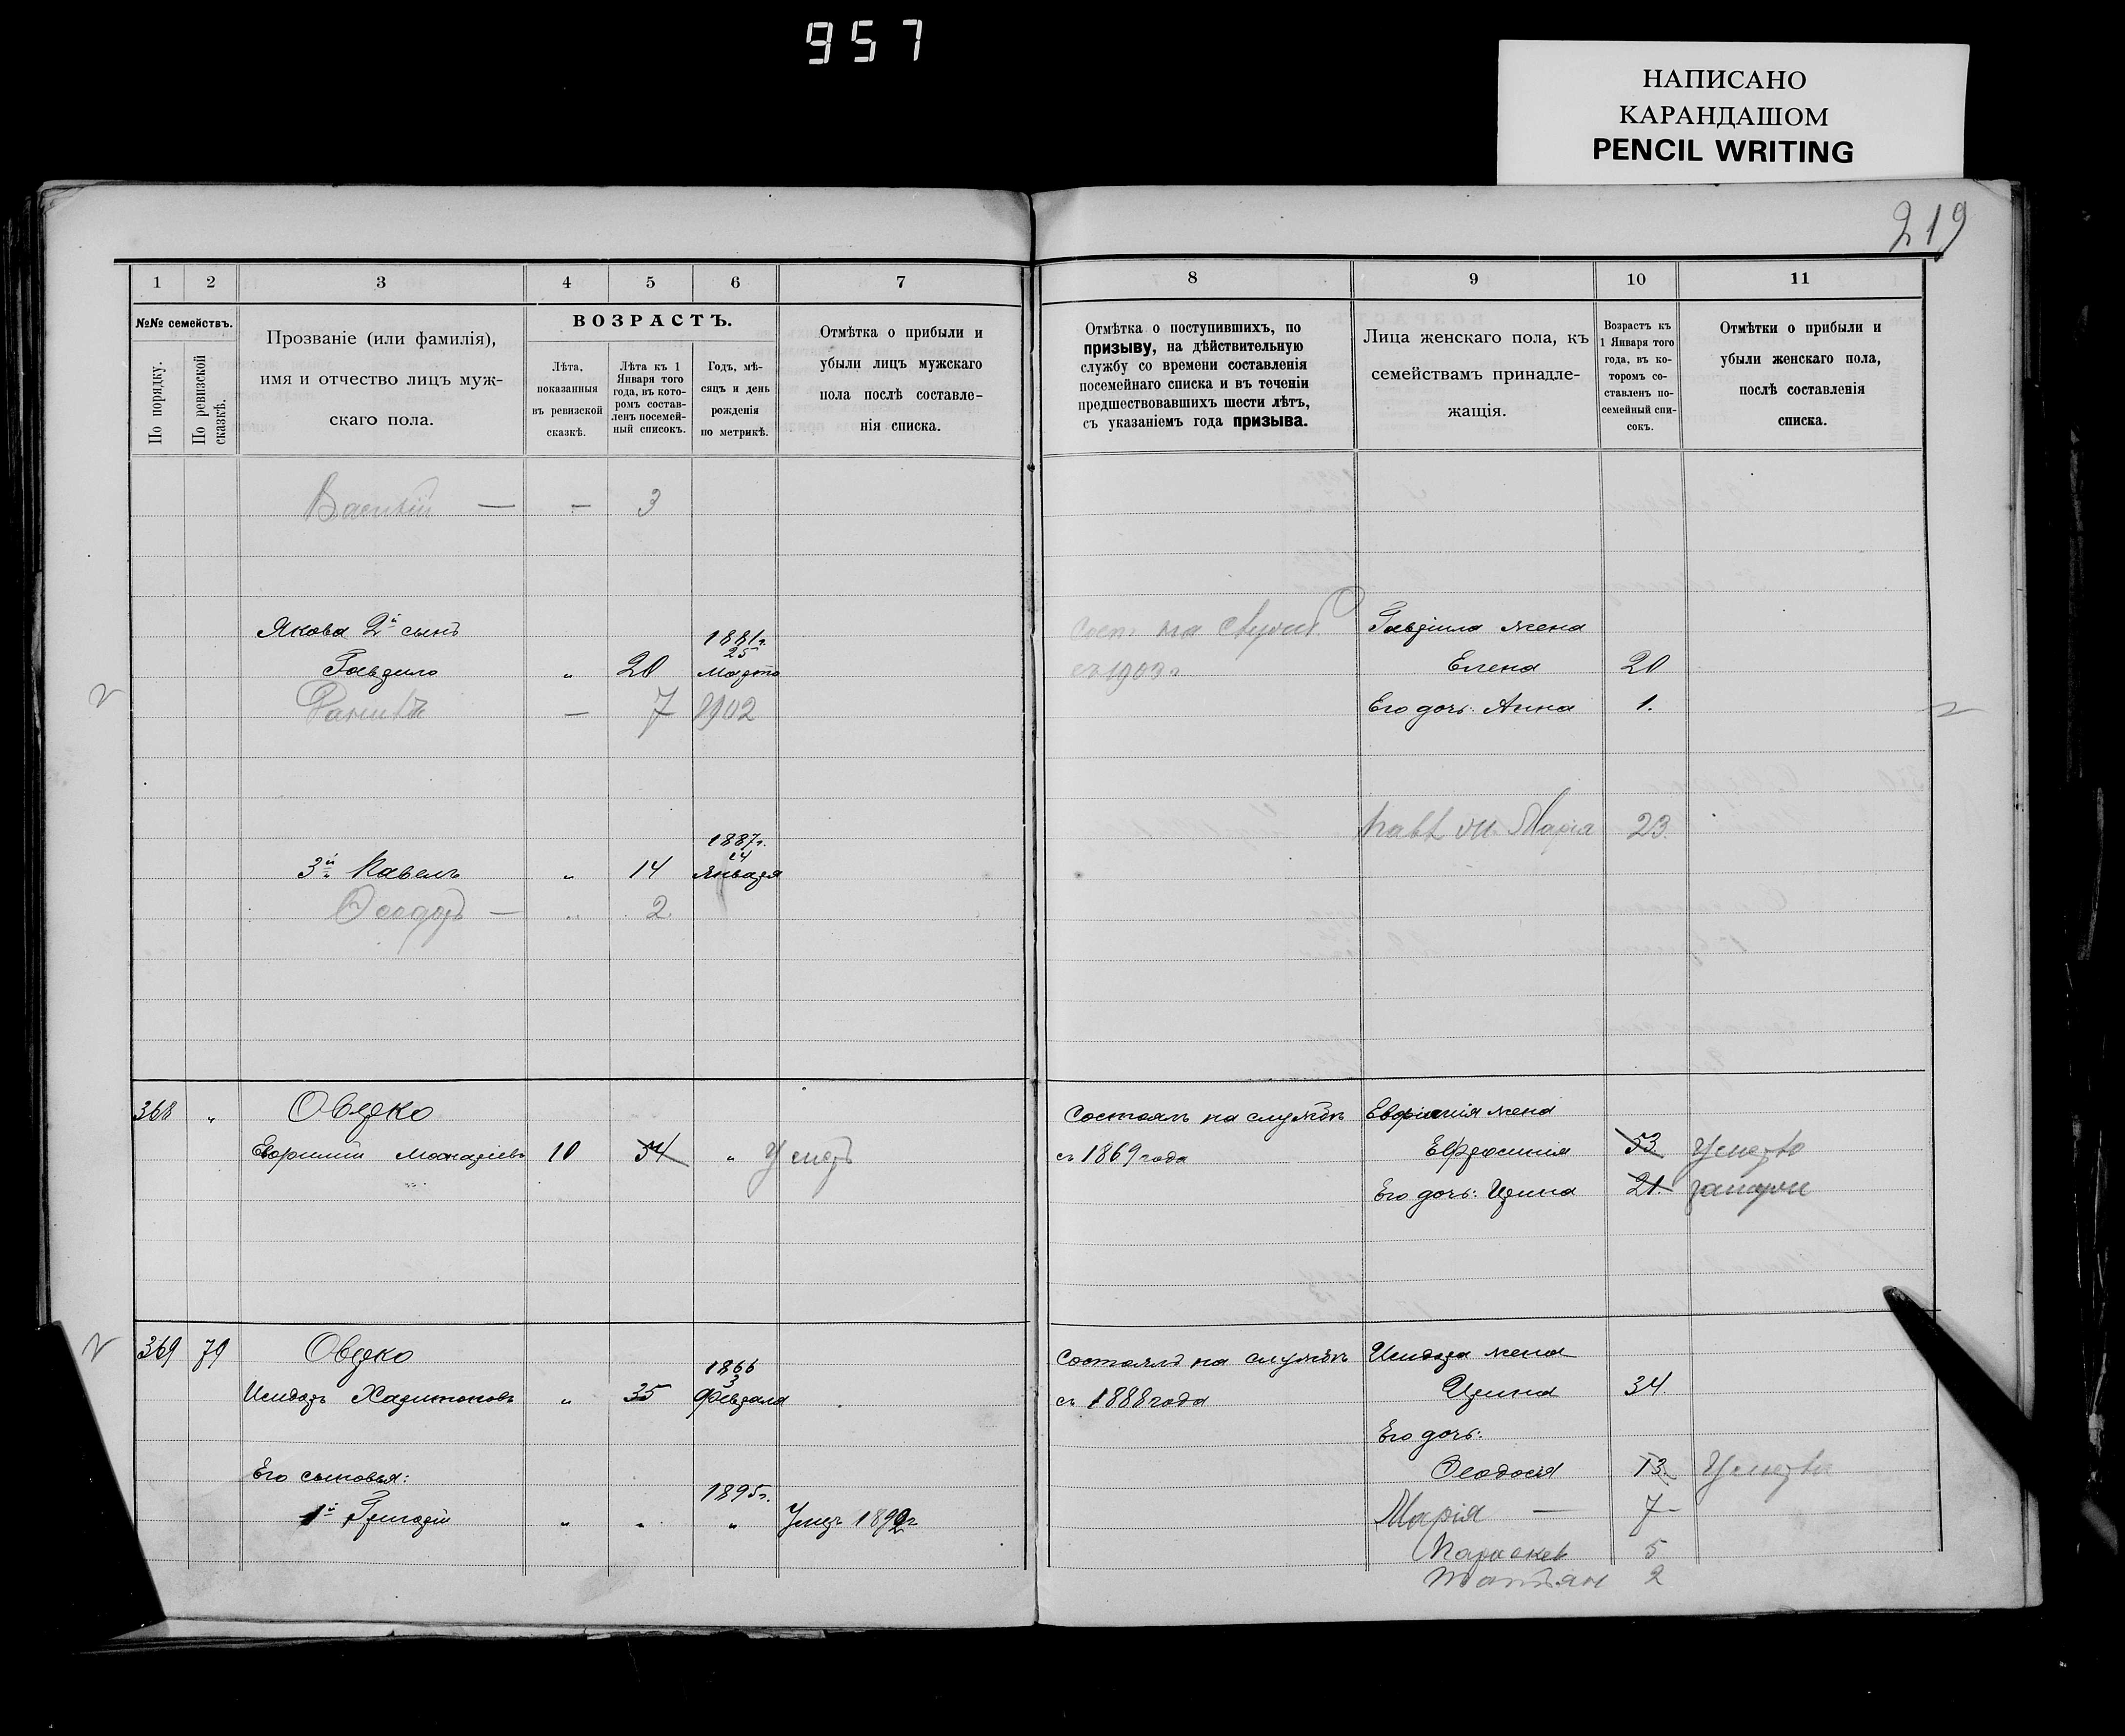 957
НАПИСАНО
КАРАНДАШОМ
PENCIL WRITING
219
1 2 3 4 5 6 7
№№ семействъ.
По порядку.
По ревизской сказкѣ.
Прозваніе (или фамилія),
имя и отчество лицъ муж-
скаго пола.
ВОЗРАСТЪ.
Лѣта,
показанныя
въ ревизской
сказкѣ.
Лѣта къ 1
Января того
года, въ кото-
ромъ состав-
ленъ посемей-
ный списокъ.
Годъ, мѣ-
сяцъ и день
рожденія
по метрикѣ.
Отмѣтка о прибыли и
убыли лицъ мужскаго
пола послѣ составле-
нія списка.
8 9 10 11
Отмѣтка о поступившихъ, по
призыву, на дѣйствительную
службу со времени составленія
посемейнаго списка и въ теченіи
предшествовавшихъ шести лѣтъ,
съ указаніемъ года призыва.
Лица женскаго пола, къ
семействамъ принадле-
жащія.
Возрастъ къ
1 Января того
года, въ ко-
торомъ со-
ставленъ по-
семейный спи-
сокъ.
Отмѣтки о прибыли и
убыли женскаго пола,
послѣ составленія
списка.
— — 3
Якова 2й сынъ 1881г.
25
Гаврило " 20 Марта
— 7 1902
на службѣ Гавріила жена
съ 1903 г Елена 20
Его дочь: Анна 1.
Марія 23
1887г.
14
3й Павелъ " 14 Января
Ѳеодоръ — " 2
368 " Оверко
10 54 " Умеръ
Состоялъ на службѣ жена
съ 1869 года Ефросинія 53 Умерла
Его дочь: Ирина 21. замужем
369 79 Оверко 1866
3
Исидоръ Харитоновъ " 35 Февраля
Состоялъ на службѣ Исидора жена
съ 1888 года Ирина 34
Его дочь:
Его сыновья: Ѳеодосія 13 Умерла
1895г.
1й Григорій " " " Умеръ 1892г
Марія — 7 —
Параскев 5
Татьян 2